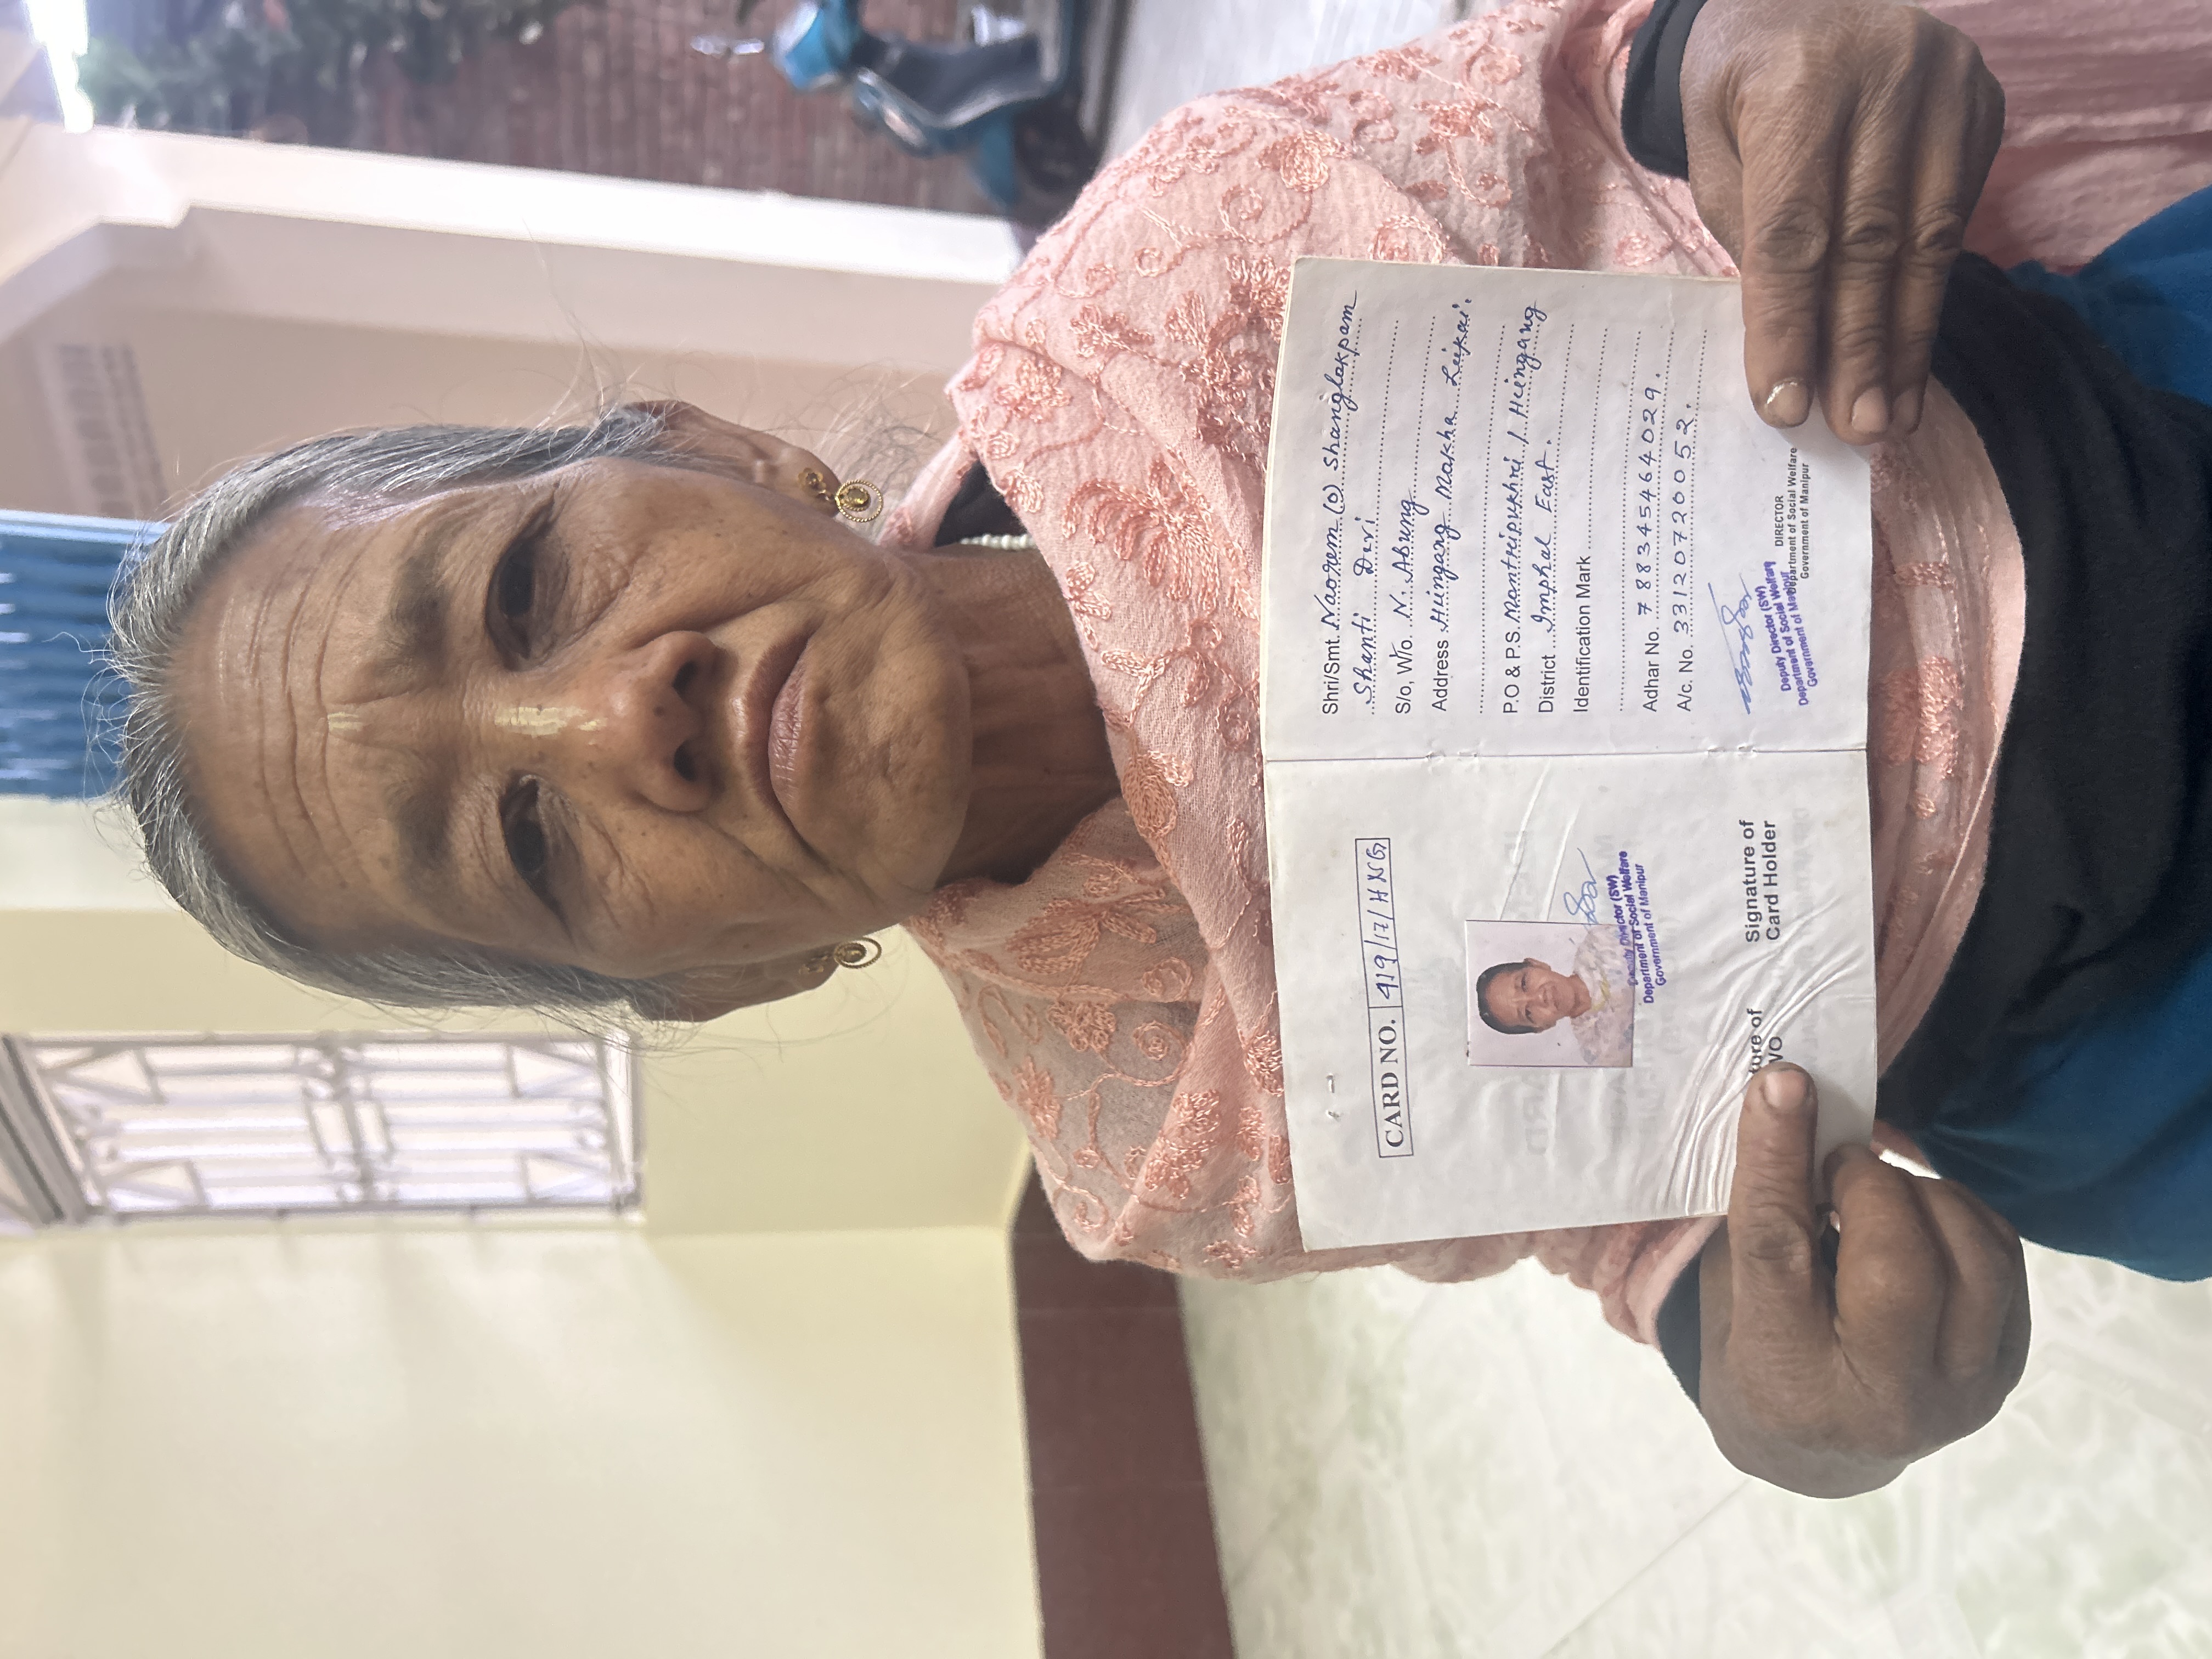 CARD NO. 419/17/HNG
Deputy Director (SW)
Department of Social Welfare
Government of Manipur
Signature of
Card Holder
Shri/Smt. Naorem (o) Shanglakpam
Shanti Devi
S/o, W/o. N. Abung
Address Heingang Makha Leikai.
P.O & P.S. Mantripukhri / Heingang
District Imphal East.
Identification Mark
Adhar No. 788345464029.
A/c. No. 33120720052.
Deputy Director (SW)
Department of Social Welfare
Government of Manipur
DIRECTOR
Department of Social Welfare
Government of Manipur